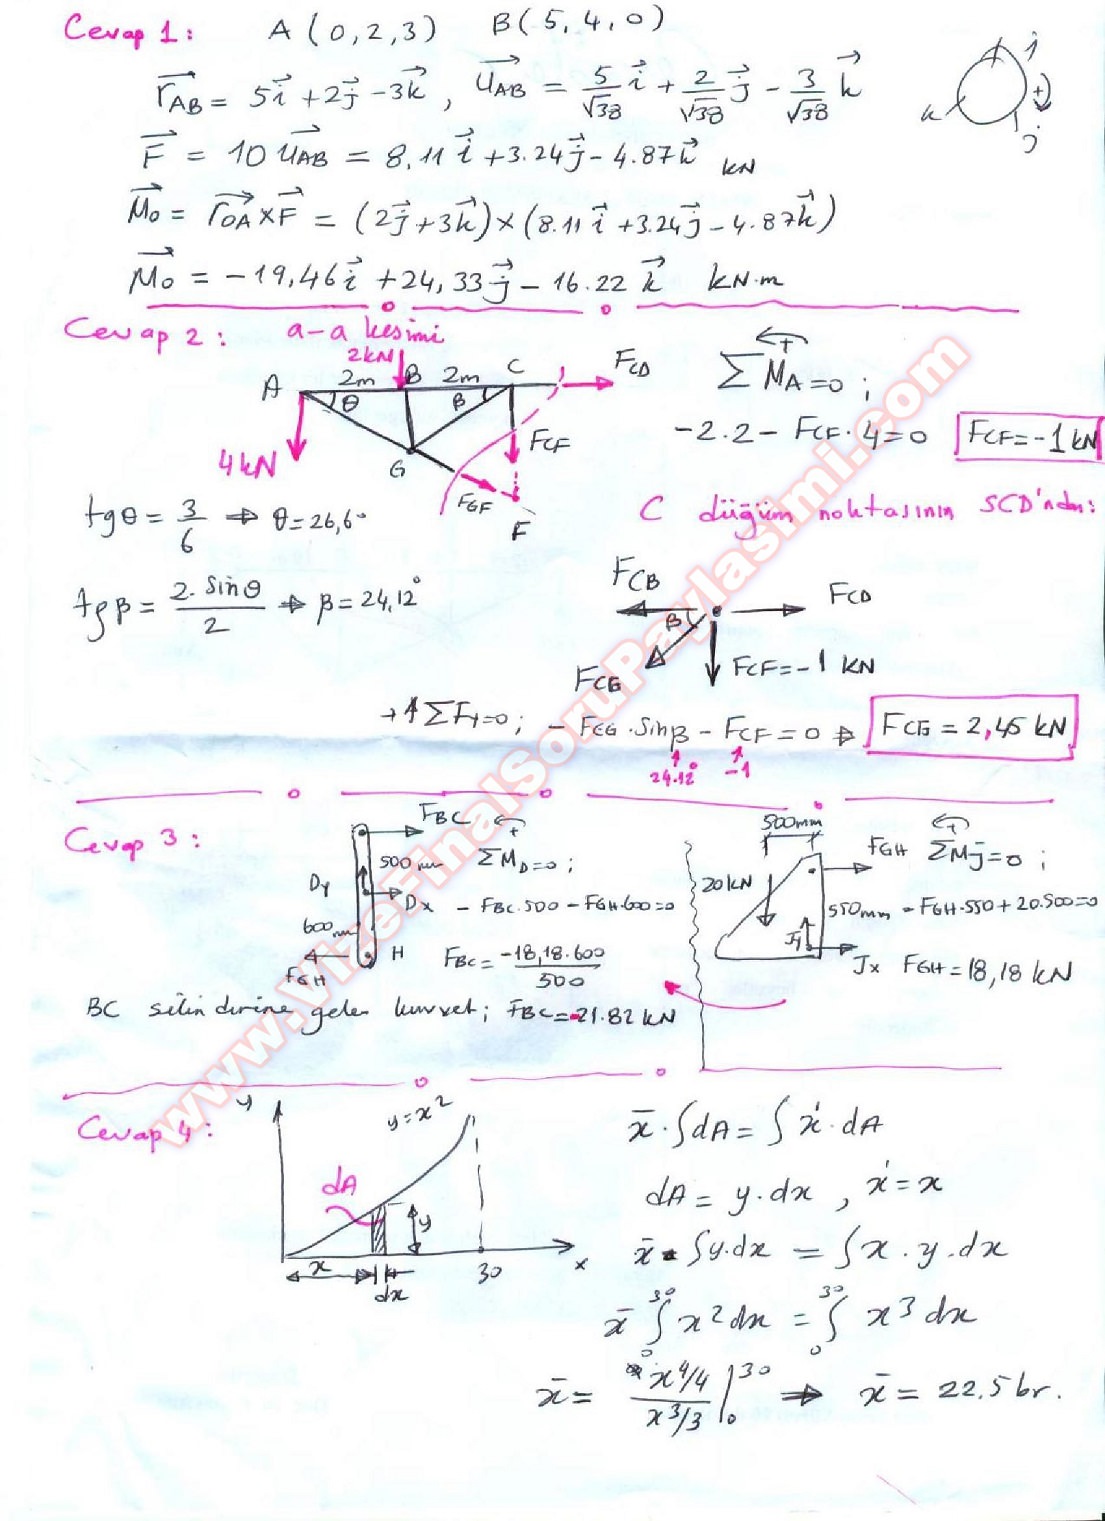 Cevap 1: A(0,2,3) B(5,4,0)
r⃗AB = 5i⃗ + 2j⃗ - 3k⃗ , u⃗AB = 5/√38 i⃗ + 2/√38 j⃗ - 3/√38 k⃗
i
k
j
+
F⃗ = 10 u⃗AB = 8.11 i⃗ + 3.24 j⃗ - 4.87 k⃗ kN
M⃗o = r⃗OA x F⃗ = (2j⃗ + 3k⃗) x (8.11 i⃗ + 3.24 j⃗ - 4.87 k⃗)
M⃗o = -19,46 i⃗ + 24,33 j⃗ - 16.22 k⃗ kN.m
Cevap 2: a-a kesimi
2kN
A 2m B 2m C FCD
θ β
4kN
G
FCF
FGF
F
ΣMA=0 ;
-2.2 - FCF.4=0 FCF=-1 kN
tgθ = 3/6 ⇒ θ=26,6°
tgβ = 2.sinθ/2 ⇒ β=24,12°
C düğüm noktasının SCD'ndan:
FCB
FCD
β
FCG
FCF=-1 kN
+↑ΣFy=0 ; - FCG.sinβ - FCF = 0 ⇒ FCG = 2,45 kN
24.12° -1
Cevap 3:
FBC
500 mm
Dy
Dx
600mm
H
FGH
ΣMD=0 ;
- FBC.500 - FGH.600=0
FBC = -18,18.600/500
BC silindirine gelen kuvvet; FBC=-21.82 kN
500mm
20kN
FGH
550mm
Jy
Jx
ΣMJ=0 ;
- FGH.550 + 20.500=0
FGH=18,18 kN
Cevap 4:
y
y=x²
dA
y
x
dx
30
x
x̄.∫dA = ∫x'.dA
dA = y.dx , x'=x
x̄.∫y.dx = ∫x.y.dx
x̄ ∫₀³⁰ x²dx = ∫₀³⁰ x³dx
x̄ = x⁴/4 / x³/3 |₀³⁰ ⇒ x̄ = 22,5 br.
www.VizeFinalSoruPaylasimi.com